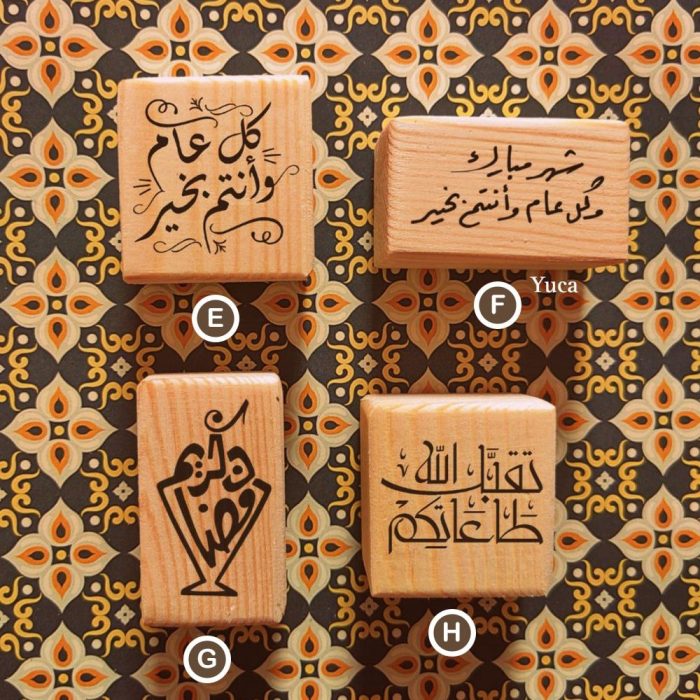 كل عام
وأنتم بخير
E
شهر مبارك
وكل عام وأنتم بخير
F
Yuca
رمضان كريم
G
تقبَّل الله
طَاعَاتِكُمْ
H